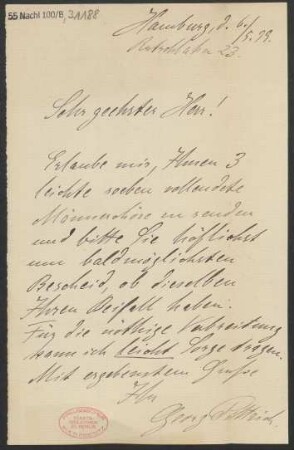 55 Nachl 100/B, 3,1188
Hamburg, d. 6./5.99.
23.
Sehr geehrter Herr!
Erlaube mir, Ihnen 3
leichte soeben vollendete
Männerchöre zu senden
und bitte Sie höflichst
um baldmöglichsten
Bescheid, ob dieselben
Ihren Beifall haben.
Für die nöthige Verbreitung
kann ich leicht Sorge tragen.
Mit ergebenstem Grusse
Ihr
Georg